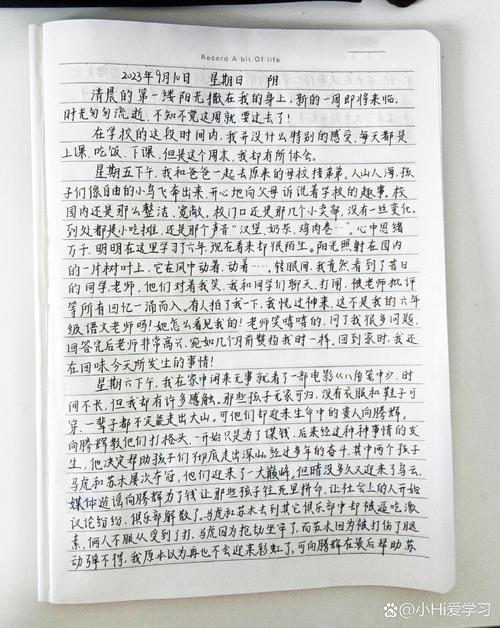 Record A bit Of life
2023年9月10日 星期日 阴
清晨的第一缕阳光撒在我的身上，新的一周即将来临，
时光匆匆流逝，不知不觉这周就要过去了！
在学校的这段时间内，我并没什么特别的感受，每天都是
上课、吃饭、下课，但是这个周末，我却有所体会。
星期五下午，我和爸爸一起去原来的母校接弟弟。人山人海，孩
子们像自由的小鸟飞奔出来，开心地向父母诉说着学校的趣事。校
园内还是那么整洁、宽敞。校门口还是那几个小卖部，没有一丝变化。
到处都是小吃摊，还是那个声音“汉堡、奶茶、鸡肉卷…”。心中思绪
万千，明明在这里学习了六年，现在看来却很陌生。阳光照射在园内
的一片树叶上，它在风中动着、动着……。转眼间，我竟然看到了昔日
的同学老师，他们对着我笑，我和同学们聊天、打闹，被老师批评
等所有回忆一涌而入。有人拍了我一下，我恍过神来，这不是我的六年
级语文老师吗！她怎么看见我的！老师笑嘻嘻的，问了我很多问题，
回答完后老师非常高兴，宛如几个月前赞扬我时一样。回到家时，我还
在回味今天所发生的事情！
星期六下午，我在家中闲来无事就看了一部电影《八角笼中》，时
间不长，但我却有许多感触。那些孩子无家可归，没有衣服和鞋子可
穿，一辈子都不定能走出大山。可他们却迎来生命中的贵人向腾辉。
向腾辉教他们打格头，一开始只是为了谋钱，后来经过种种事情的发
生，他决定帮助孩子们彻底走出深山。经过多年的奋斗，其中两个孩子
马虎和苏木屡次夺冠，他们迎来了一大巅峰。但暗没多久又迎来了乌云，
媒体造谣向腾辉为了钱让那些孩子往死里拼命，让社会上的人开始
议论纷纷，俱乐部解散了，马虎和苏木去到其它俱乐部中却被逼吃激
素，俩人不服从受到了打，马虎因为抢劫坐牢了，而苏木因为被打伤了腿
动弹不得，我原本以为再也不会迎来彩虹了，可向腾辉在最后帮助苏
小Hi爱学习